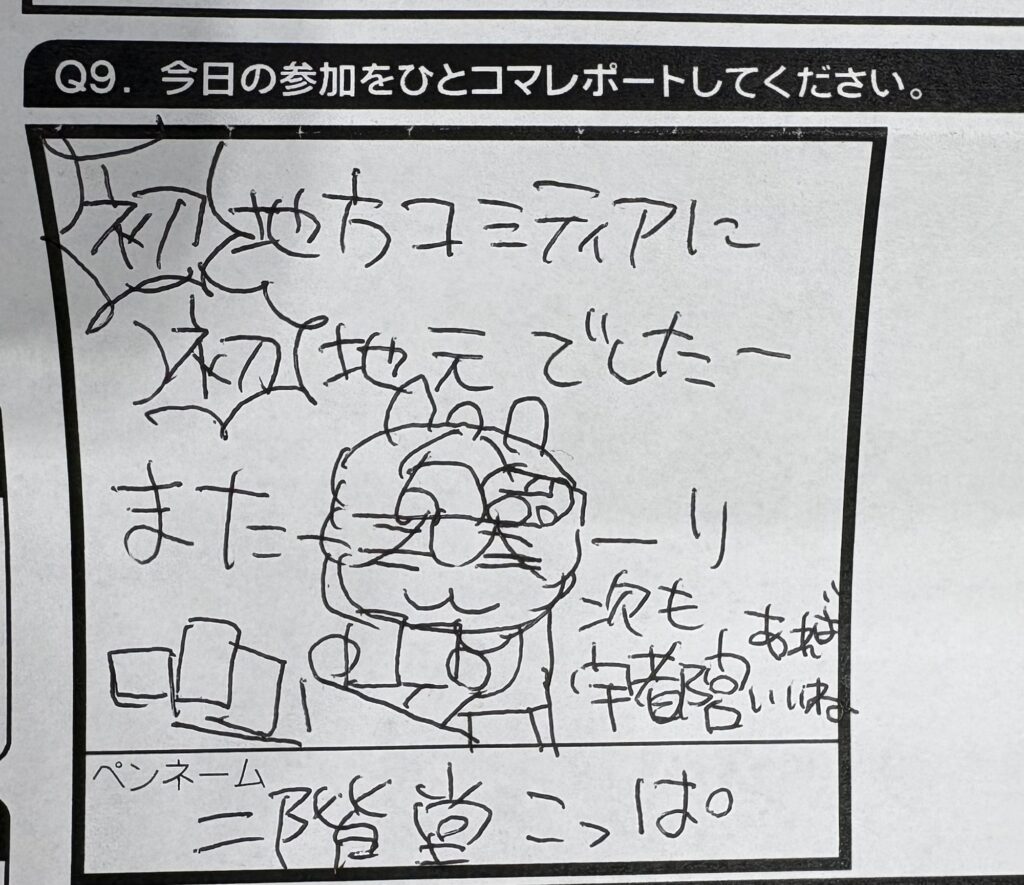 Q9. 今日の参加をひとコマレポートしてください。
初地方コミティアに
初地元でしたー
またーーり
次も
宇都宮
あれば
いいね
ペンネーム
二階堂こっぱ。